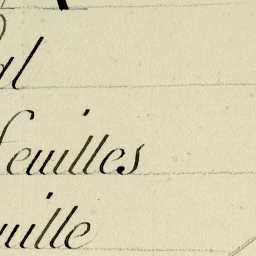 al
feuilles
uille